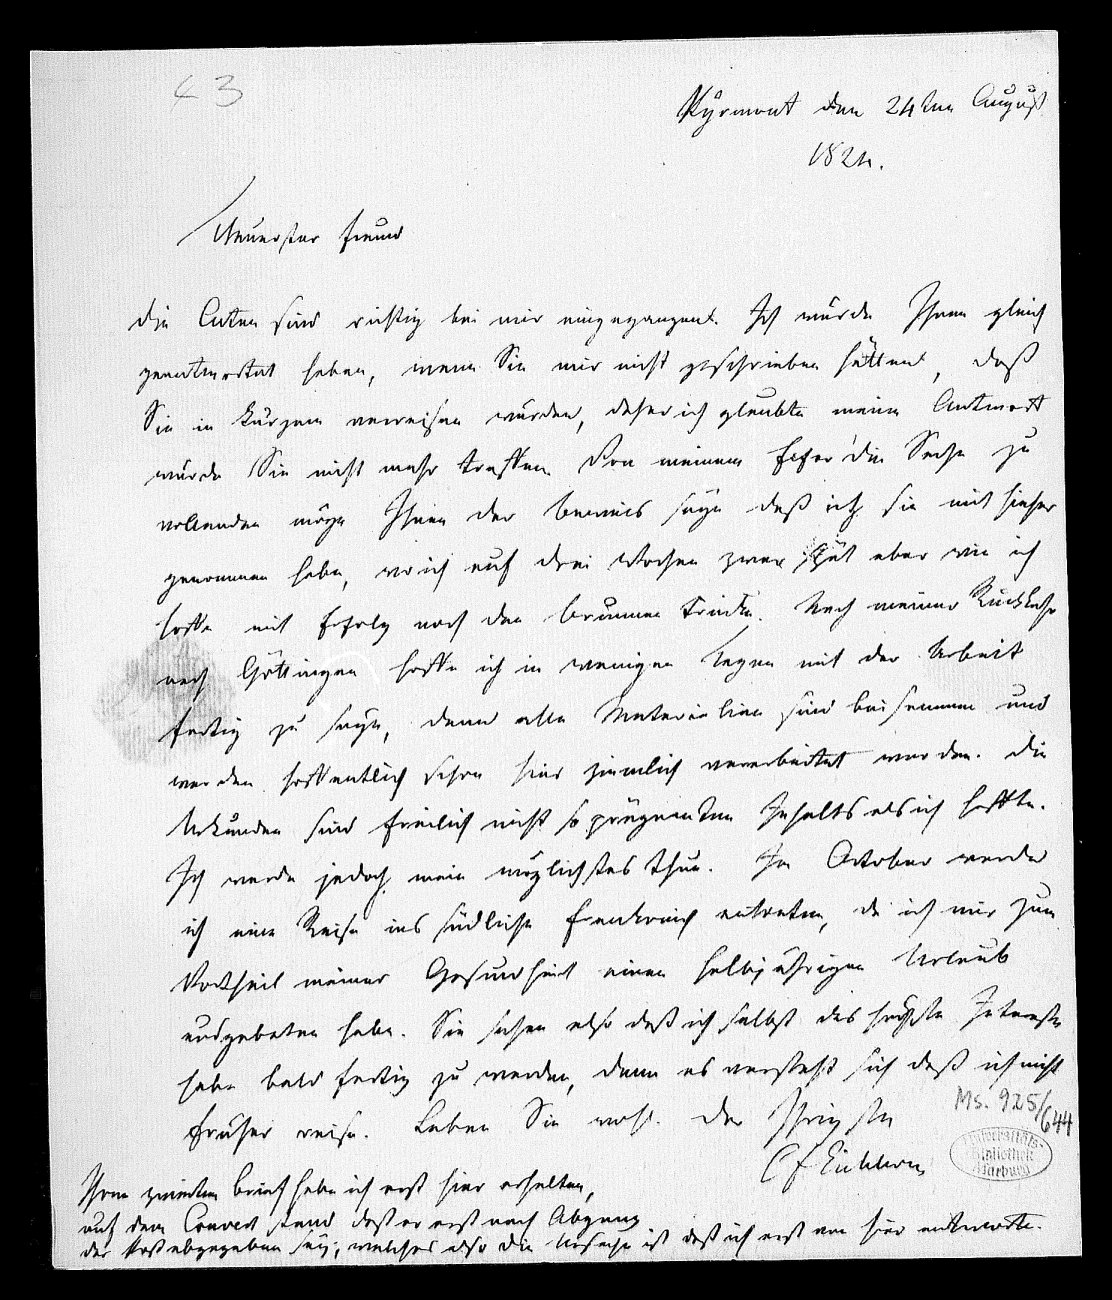 43
Pyrmont den 24ten August
1824.
Theuerster Freund
Die Acten sind richtig bei mir eingegangen. Ich würde Ihnen gleich
geantwortet haben, wenn Sie mir nicht geschrieben hätten, daß
Sie in kurzem verreisen würden, daher ich glaubte meine Antwort
würde Sie nicht mehr treffen. Von meinem Eifer die Sache zu
vollenden möge Ihnen der Beweis seyn daß ich sie mit hieher
genommen habe, wo ich auf drei Wochen zwar spät aber wie ich
hoffe mit Erfolg noch den Brunnen trinke. Nach meiner Rückkehr
nach Göttingen hoffe ich in wenigen Tagen mit der Arbeit
fertig zu seyn, denn alle Materialien sind beisammen und
werden hoffentlich schon hier ziemlich verarbeitet werden. Die
Urkunden sind freilich nicht so prägnanten Inhalts als ich hoffte.
Ich werde jedoch mein möglichstes thun. Im October werde
ich eine Reise ins südliche Frankreich antreten, da ich mir zum
Vortheil meiner Gesundheit einen halbjährigen Urlaub
ausgebeten habe. Sie sehen also daß ich selbst das höchste Interesse
habe bald fertig zu werden, denn es versteht sich daß ich nicht
früher reise. Leben Sie wohl. Der Ihrigste
CF Eichhorn
Ms. 925/644
Universitäts-
Bibliothek
Marburg
Ihren zweiten Brief habe ich erst hier erhalten,
auf dem Couvert stand daß er erst nach Abgang
der Post abgegeben sey; welches also die Ursache ist daß ich erst von hier antworte.